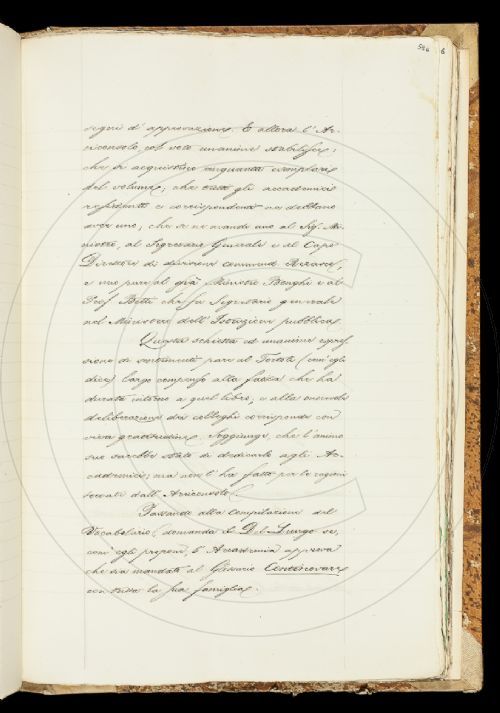 586 6
segni d'approvazione. E allora l'Ar-
ciconsolo, col voto unanime stabilisce:
che si acquistino cinquanta esemplari
del volume; che tutti gli accademici
residenti e corrispondenti ne debbano
aver uno; che se ne mandi uno al Sig. Mi-
nistro, al Segretario Generale e al Capo
Direttore di divisione commend. Rezasco;
e uno pure al già Ministro Bonghi e al
Prof. Betti che fu Segretario generale
nel Ministero dell'Istruzione pubblica.
Questa schietta ed unanime espres-
sione di sentimenti pare al Tortoli (com'egli
dice) largo compenso alla fatica che ha
durata intorno a quel libro; e alla onorevole
deliberazione dei colleghi corrisponde con
viva gratitudine. Soggiunge, che l'animo
suo sarebbe stato di dedicarlo agli Ac-
cademici; ma non l'ha fatto per le ragioni
toccate dall'Arciconsolo.
Passando alla Compilazione del
Vocabolario, domanda il Del Lungo se,
com'egli propone, l'Accademia approva
che sia mandata al Glossario
con tutta la sua famiglia.